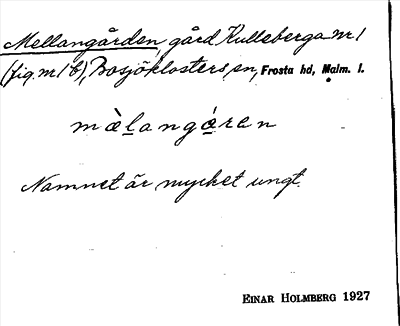 Mellangården, gård Kulleberga nr 1
(fig. nr 1 b), Bosjöklosters sn, Frosta hd, Malm. l.
mæ̀langá̱ren
Namnet är mycket ungt.
EINAR HOLMBERG 1927